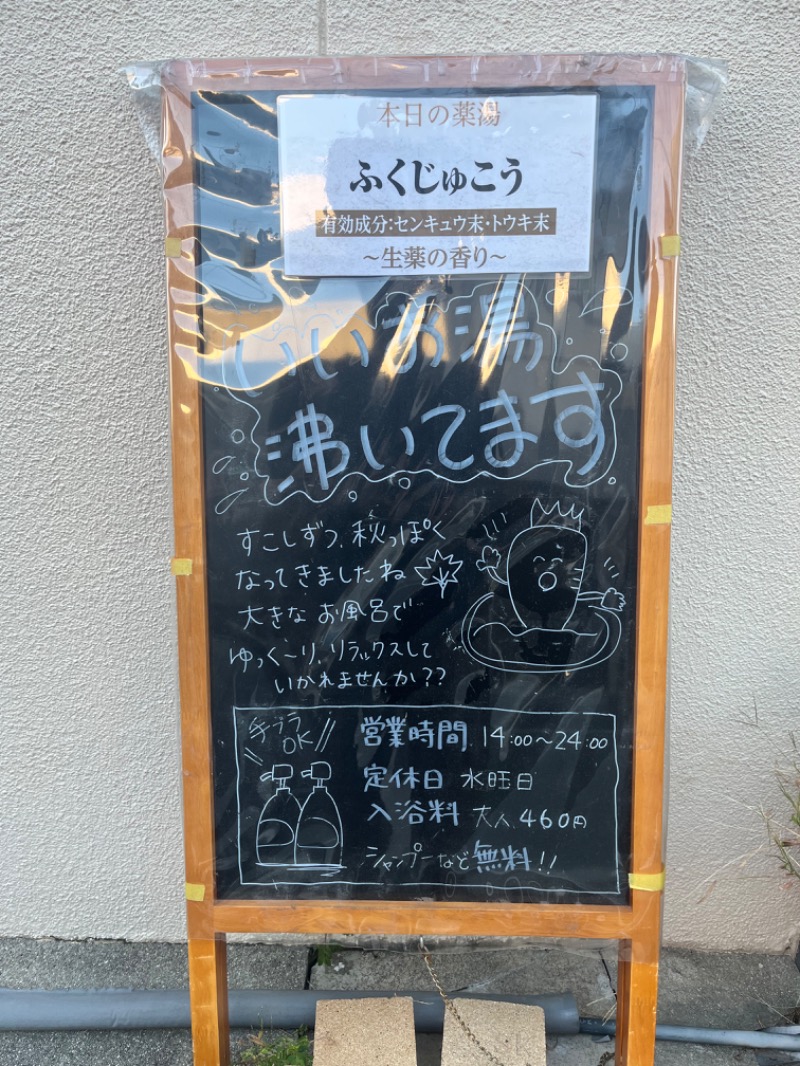 本日の薬湯
ふくじゅこう
有効成分:センキュウ末・トウキ末
～生薬の香り～
いいお湯
沸いてます
すこしずつ、秋っぽく
なってきましたね
大きなお風呂で
ゆっく～り、リラックスして
いかれませんか??
手ブラ
OK
営業時間 14:00～24:00
定休日 水旺日
入浴料 大人 460円
シャンプーなど無料!!